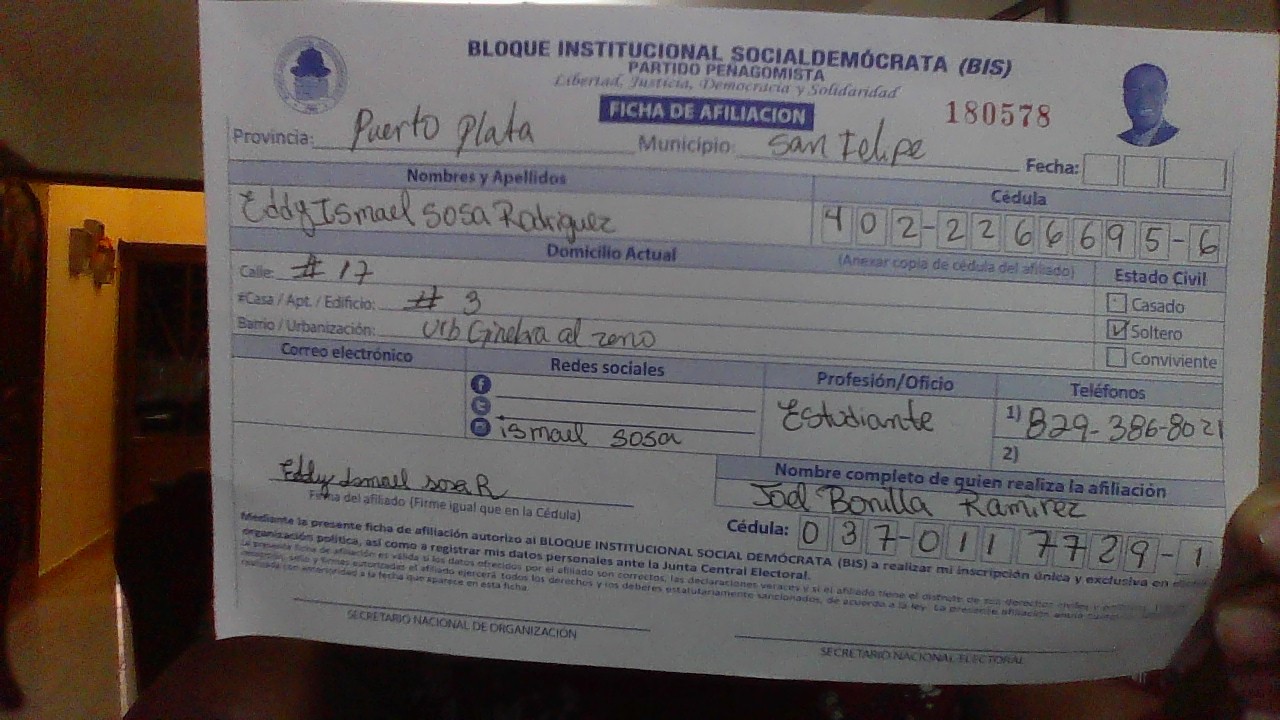 BLOQUE INSTITUCIONAL SOCIALDEMÓCRATA (BIS)
PARTIDO PEÑAGOMISTA
Libertad, Justicia, Democracia y Solidaridad
FICHA DE AFILIACION
180578
Provincia: Puerto Plata Municipio: San Felipe
Fecha:
Nombres y Apellidos Cédula
Eddy Ismael Sosa Rodriguez 402-2266695-6
Domicilio Actual (Anexar copia de cédula del afiliado) Estado Civil
Calle: # 17
Casado
#Casa / Apt. / Edificio: # 3
Soltero
Barrio / Urbanización: Urb Ginebra al zeno
Conviviente
Correo electrónico Redes sociales Profesión/Oficio Teléfonos
Estudiante 1) 829-386-8021
ismael sosa
2)
Eddy Ismael sosa R
Firma del afiliado (Firme igual que en la Cédula)
Nombre completo de quien realiza la afiliación
Joel Bonilla Ramirez
Cédula: 037-0117729-1
Mediante la presente ficha de afiliación autorizo al BLOQUE INSTITUCIONAL SOCIAL DEMÓCRATA (BIS) a realizar mi inscripción única y exclusiva en
organización política, así como a registrar mis datos personales ante la Junta Central Electoral.
La presente ficha de afiliación es válida si los datos ofrecidos por el afiliado son correctos, las declaraciones veraces y si el afiliado tiene el disfrute de sus derechos civiles y
y firmas autorizadas el afiliado ejercerá todos los derechos y los deberes estatutariamente sancionados, de acuerdo a la ley. La presente afiliación
realizada con anterioridad a la fecha que aparece en esta ficha.
SECRETARIO NACIONAL DE ORGANIZACIÓN
SECRETARIO NACIONAL ELECTORAL